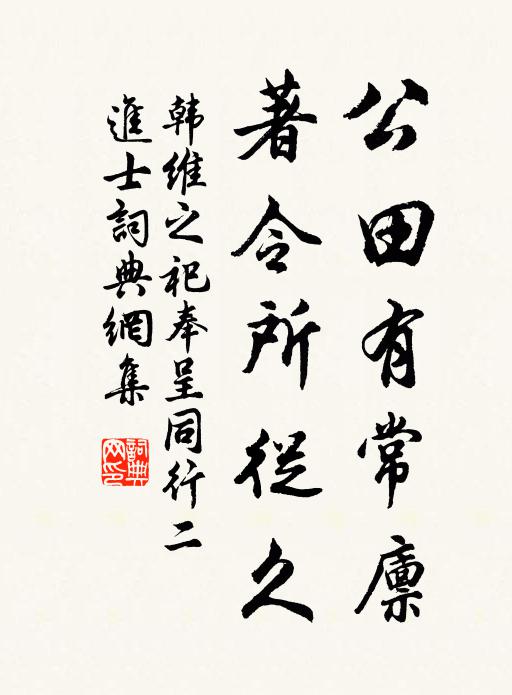 公田有常廪
著令所從久
韩維之祀奉呈同行二
進士詞典網集
詞典
网印